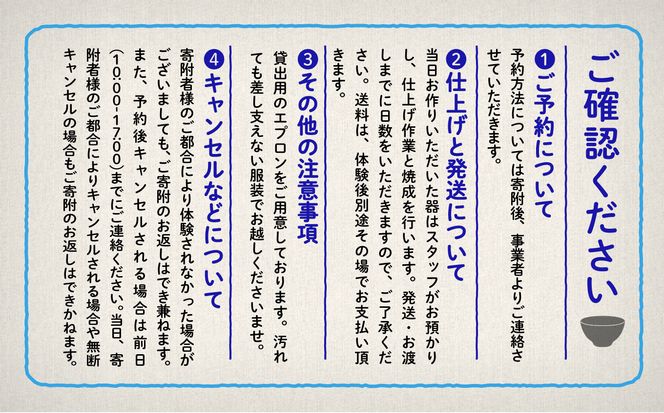 ご確認ください
❶ご予約について
予約方法については寄附後、事業者よりご連絡さ
せていただきます。
❷仕上げと発送について
当日お作りいただいた器はスタッフがお預かり
し、仕上げ作業と焼成を行います。発送・お渡
しまでに日数をいただきますので、ご了承くだ
さい。送料は、体験後別途その場でお支払い頂
きます。
❸その他の注意事項
貸出用のエプロンをご用意しております。汚れ
ても差し支えない服装でお越しくださいませ。
❹キャンセルなどについて
寄附者様のご都合により体験されなかった場合が
ございましても、ご寄附のお返しはでき兼ねます。
また、予約後キャンセルされる場合は前日
(10:00-17:00)までにご連絡ください。当日、寄
附者様のご都合によりキャンセルされる場合や無断
キャンセルの場合もご寄附のお返しはできかねます。